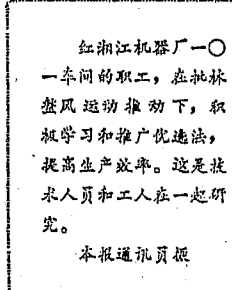 红湘江机器厂一〇
一车间的职工，在批林
整风运动推动下，积
极学习和推广优选法，
提高生产效率。这是技
术人员和工人在一起研
究。
本报通讯员摄